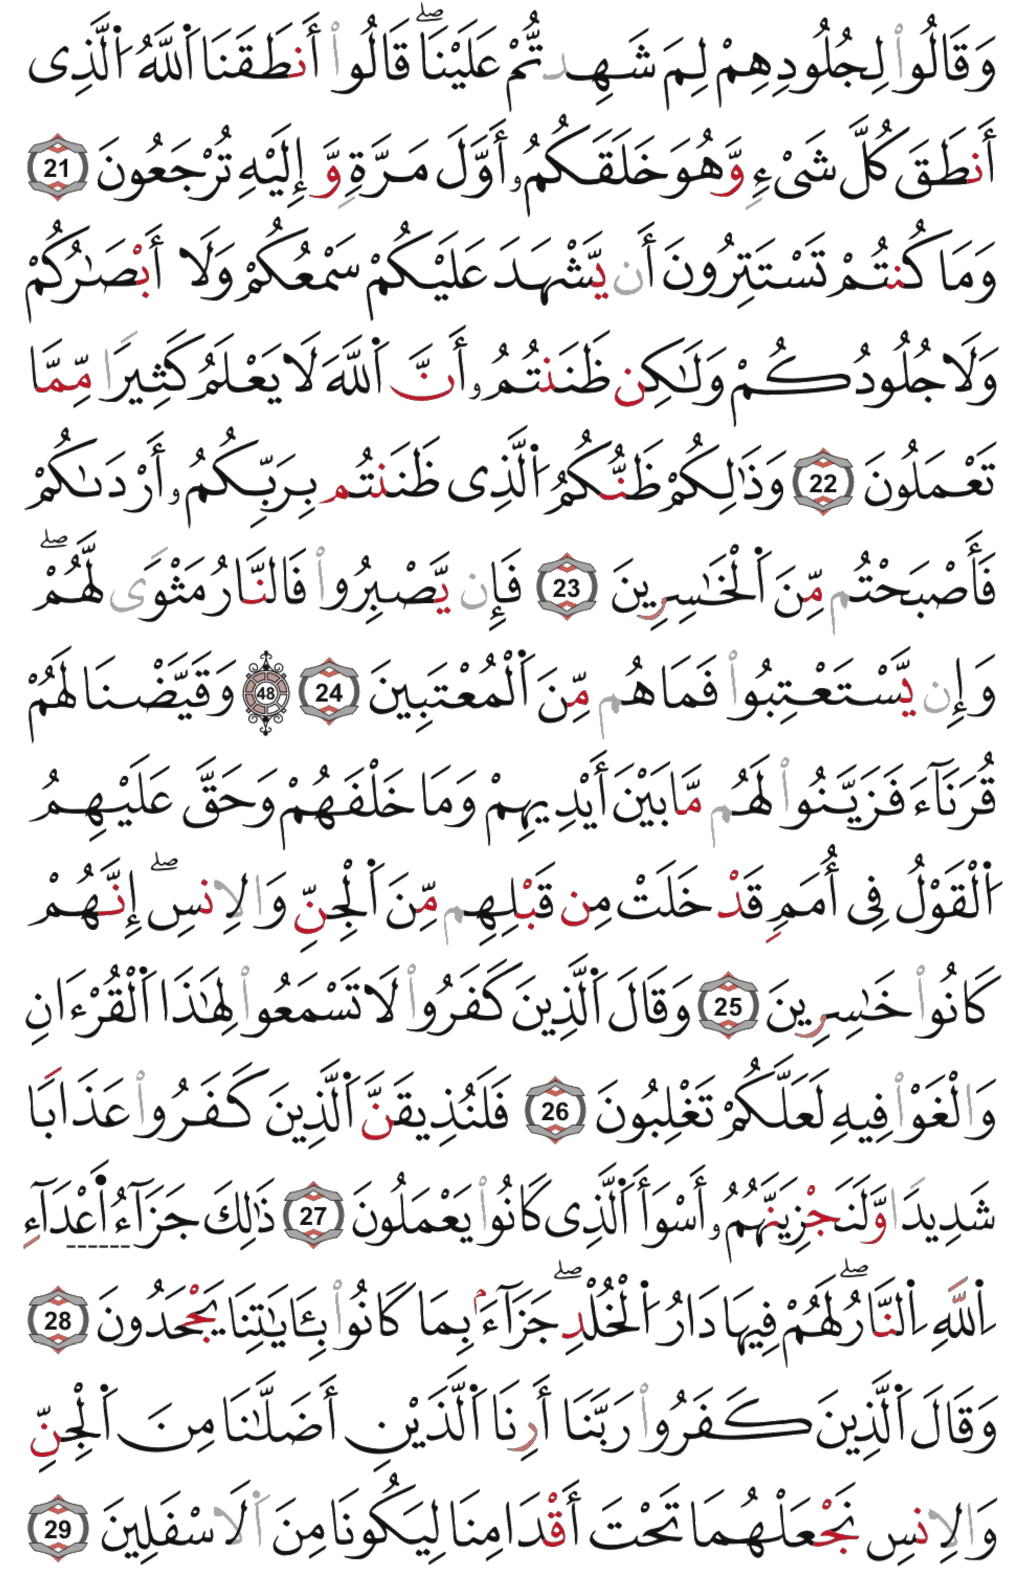 وَقَالُواْ لِجُلُودِهِمْ لِمَ شَهِدتُّمْ عَلَيْنَاۖ قَالُواْ أَنطَقَنَا اَ۬للَّهُ اُ۬لَّذِى
أَنطَقَ كُلَّ شَىْءٍ وَّهُوَ خَلَقَكُمُۥ أَوَّلَ مَرَّةٍ وَّإِلَيْهِ تُرْجَعُونَ 21
وَمَا كُنتُمْ تَسْتَتِرُونَ أَن يَّشْهَدَ عَلَيْكُمْ سَمْعُكُمْ وَلَا أَبْصَٰرُكُمْ
وَلَا جُلُودُكُمْ وَلَٰكِن ظَنَنتُمُۥ أَنَّ اَ۬للَّهَ لَا يَعْلَمُ كَثِيرًا مِّمَّا
تَعْمَلُونَ 22 وَذَٰلِكُمْ ظَنُّكُمُ اُ۬لَّذِى ظَنَنتُم بِرَبِّكُمُۥ أَرْدَىٰكُمْ
فَأَصْبَحْتُم مِّنَ اَ۬لْخَٰسِرِينَ 23 فَإِن يَّصْبِرُواْ فَالنَّارُ مَثْوًى لَّهُمْۖ
وَإِن يَّسْتَعْتِبُواْ فَمَا هُم مِّنَ اَ۬لْمُعْتَبِينَ 24 48 وَقَيَّضْنَا لَهُمْ
قُرَنَآءَ فَزَيَّنُواْ لَهُم مَّا بَيْنَ أَيْدِيهِمْ وَمَا خَلْفَهُمْ وَحَقَّ عَلَيْهِمُ
اُ۬لْقَوْلُ فِى أُمَمٍ قَدْ خَلَتْ مِن قَبْلِهِم مِّنَ اَ۬لْجِنِّ وَالِانسِۖ إِنَّهُمْ
كَانُواْ خَٰسِرِينَ 25 وَقَالَ اَ۬لَّذِينَ كَفَرُواْ لَا تَسْمَعُواْ لِهَٰذَا اَ۬لْقُرْءَانِ
وَالْغَوْاْ فِيهِ لَعَلَّكُمْ تَغْلِبُونَ 26 فَلَنُذِيقَنَّ اَ۬لَّذِينَ كَفَرُواْ عَذَابًا
شَدِيدًا وَّلَنَجْزِيَنَّهُمُۥ أَسْوَأَ اَ۬لَّذِى كَانُواْ يَعْمَلُونَ 27 ذَٰلِكَ جَزَآءُ اَ۬عْدَآءِ
اِ۬للَّهِ اِ۬لنَّارُۖ لَهُمْ فِيهَا دَارُ اُ۬لْخُلْدِۖ جَزَآءَۢ بِمَا كَانُواْ بِـَٔايَٰتِنَا يَجْحَدُونَ 28
وَقَالَ اَ۬لَّذِينَ كَفَرُواْ رَبَّنَا أَرِنَا اَ۬لَّذَيْنِ أَضَلَّٰنَا مِنَ اَ۬لْجِنِّ
وَالِانسِ نَجْعَلْهُمَا تَحْتَ أَقْدَامِنَا لِيَكُونَا مِنَ اَ۬لَاسْفَلِينَ 29